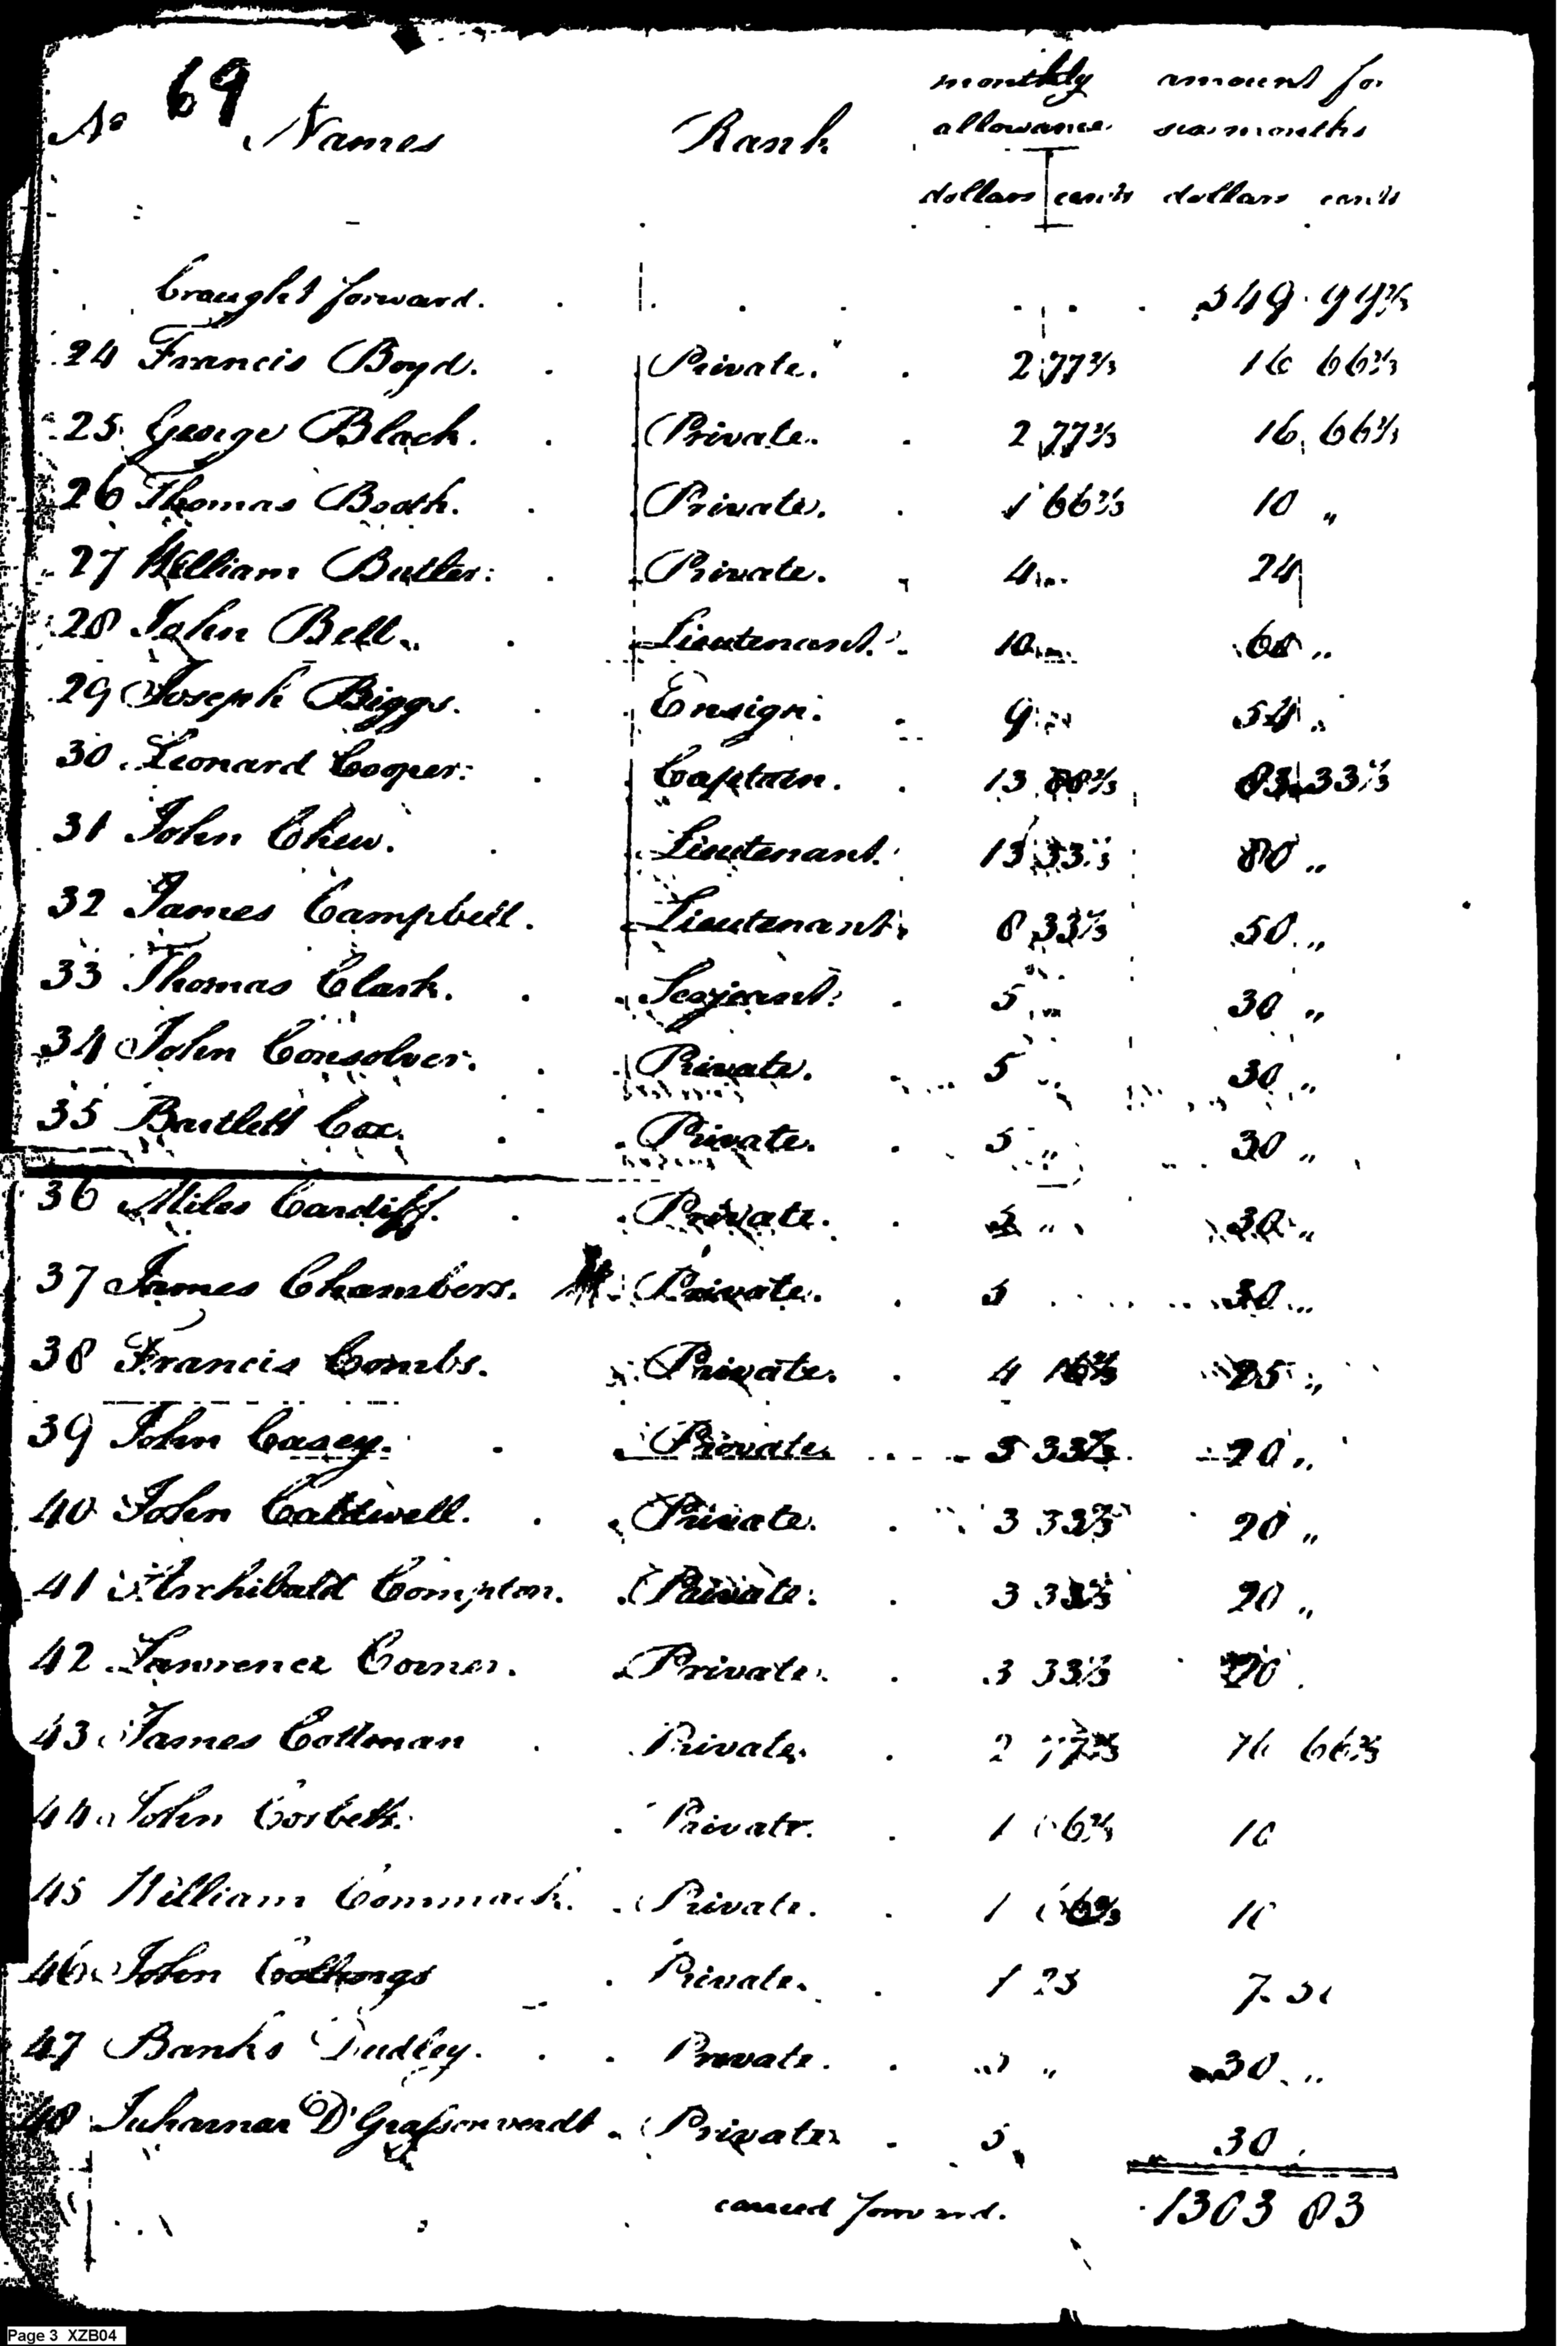 69
No Names Rank monthly allowance amount for six months
dollars cents dollars cents
brought forward. 549. 99 2/3
24 Francis Boyd. Private. 2 77 2/3 16 66 2/3
25 George Black. Private. 2 77 2/3 16 66 2/3
26 Thomas Booth. Private. 1 66 2/3 10 "
27 William Butler. Private. 4 " 24
28 John Bell. Lieutenant. 10 " 60 "
29 Joseph Biggs. Ensign. 9 " 54 "
30 Leonard Cooper. Captain. 13 88 2/3 83 33 1/3
31 John Chew. Lieutenant. 13 33 1/3 80 "
32 James Campbell. Lieutenant. 8 33 1/3 50 "
33 Thomas Clark. Serjeant. 5 " 30 "
34 John Consolver. Private. 5 " 30 "
35 Bartlett Cox. Private. 5 " 30 "
36 Miles Cardiff. Private. 5 " 30 "
37 James Chambers. Private. 5 30 "
38 Francis Combs. Private. 4 16 2/3 25 "
39 John Casey. Private. 3 33 1/3 20 "
40 John Caldwell. Private. 3 33 1/3 20 "
41 Archibald Compton. Private. 3 33 1/3 20 "
42 Lawrence Corner. Private. 3 33 1/3 20
43 James Collman Private. 2 77 2/3 16 66 2/3
44 John Corbett. Private. 1 66 2/3 10
45 William Commack. Private. 1 66 2/3 10
46 John Private. 1 25 7. 50
47 Banks Dudley. Private. 5 " 30 "
48 D'Graffenreidt. Private. 5 30
carried forward. 1303 83
Page 3 XZB04